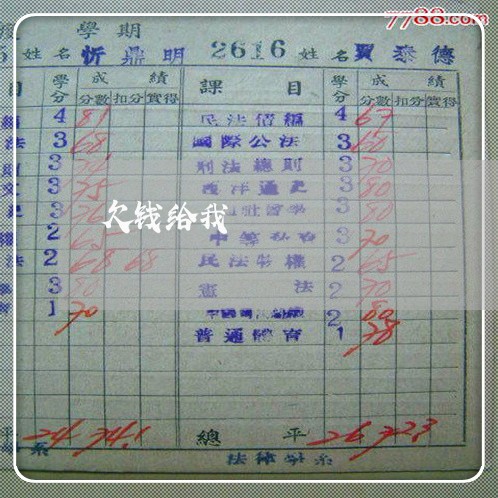 7788.com
學期
5 姓名 忻鼎明 2616 姓名 賈泰德
目 學分 成績 課目 學分 成績
分數 扣分 實得 分數 扣分 實得
4 81 民法債編 4 67
法 3 68 國際公法 3 60
3 刑法總則 3 70
3 75 西洋通史 3 80
3 3 80
欠钱给我
權 2 3 70
法 2 68 68 民法物權 2 65
3 80 憲法 2 70
育 1 70 2 80
普通體育 1 78
平 24 74.1 總平 26 72.3
系 法律學系